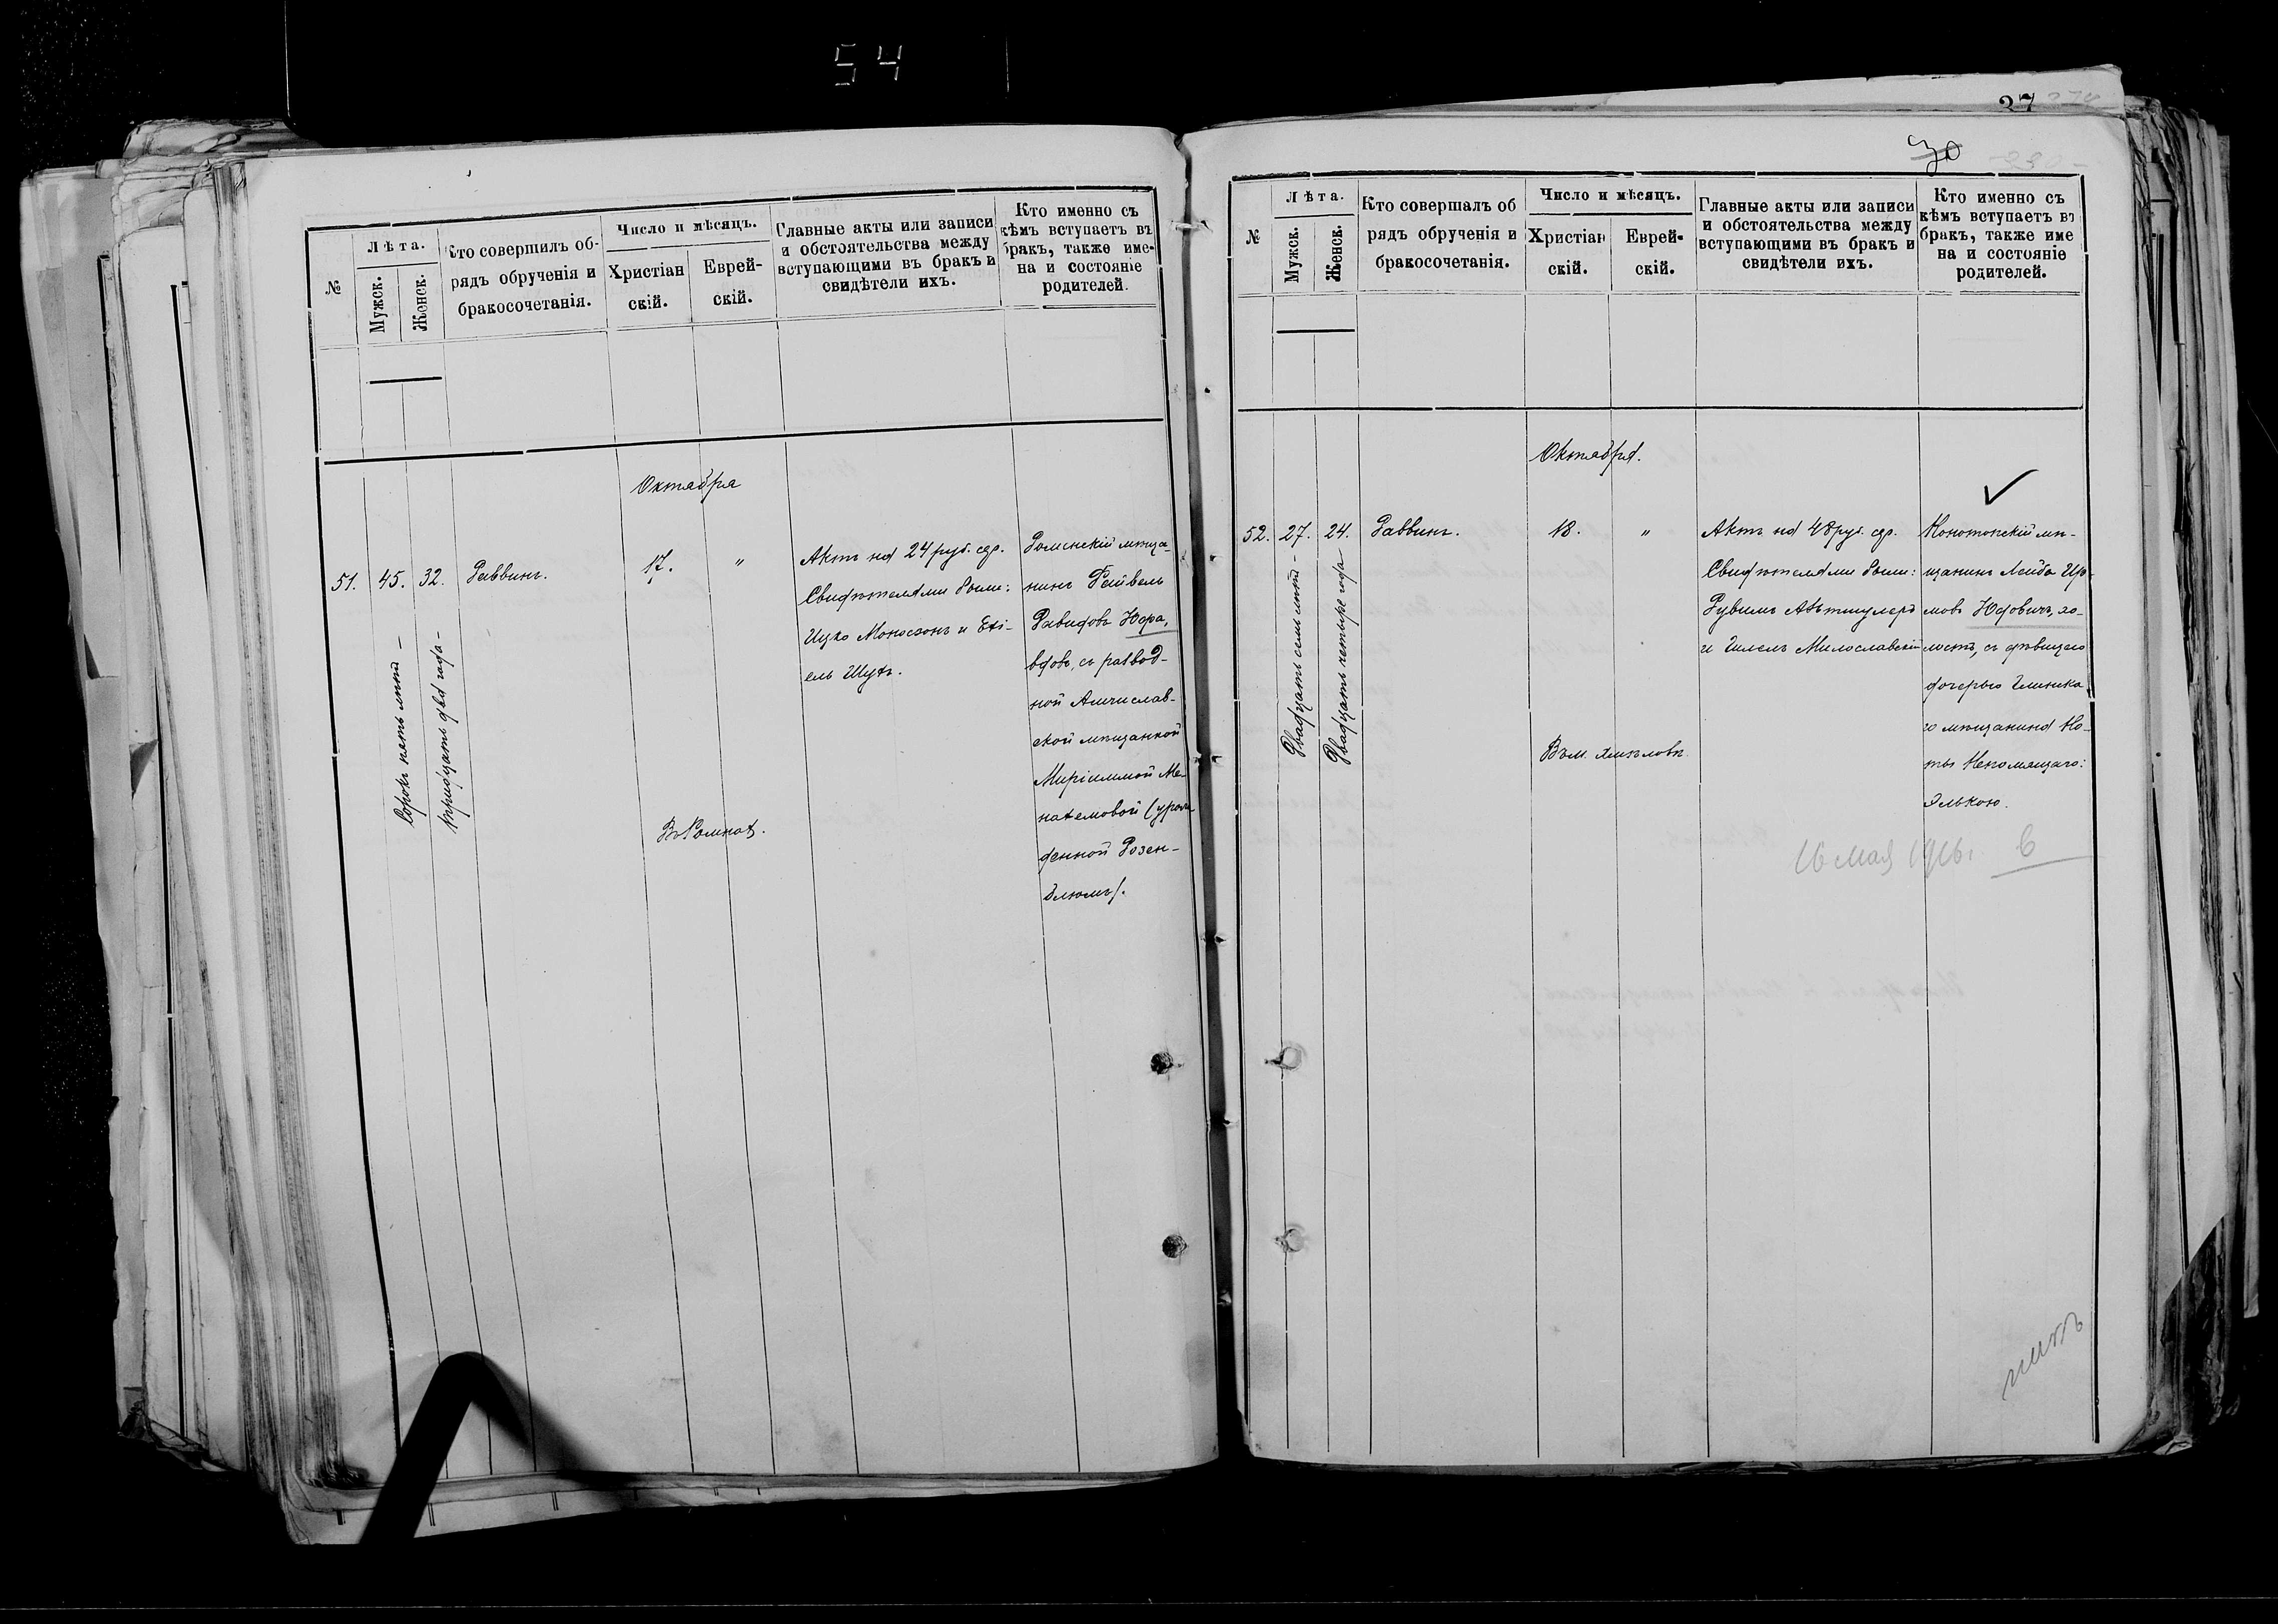 54
№
Лѣта.
Мужск.
Женск.
Кто совершилъ об-
рядъ обрученія и
бракосочетанія.
Число и мѣсяцъ.
Христіан
скій.
Еврей-
скій.
Главные акты или записи
и обстоятельства между
вступающими въ бракъ и
свидѣтели ихъ.
Кто именно съ
кѣмъ вступаетъ въ
бракъ, также име-
на и состояніе
родителей.
Октября
51. 45. 32. Раввинъ. 17. "
Сорокъ пять лѣтъ –
тридцать два года –
Въ Ромнахъ.
Актъ на 24 руб. сер.
Свидѣтелями были:
Ицко Моносзонъ и Ехі-
ель Шуръ.
Роменскій мѣща-
нинъ Фейвель
Давидовъ Юфа,
вдовъ, съ развод-
ной
ской мѣщанкой
Миріаммой Ме-
нахемовой (урож-
денной Розен-
блюмъ).
37
30
№
Лѣта.
Мужск.
Женск.
Кто совершалъ об
рядъ обрученія и
бракосочетанія.
Число и мѣсяцъ.
Христіан
скій.
Еврей-
скій.
Главные акты или записи
и обстоятельства между
вступающими въ бракъ и
свидѣтели ихъ.
Кто именно съ
кѣмъ вступаетъ въ
бракъ, также име
на и состояніе
родителей.
Октября.
52. 27. 24. Раввинъ. 18. "
Двадцать семь лѣтъ –
Двадцать четыре года –
Въ м. Хмѣловѣ
Актъ на 48 руб. сер.
Свидѣтелями были:
Рувимъ Альтшулеръ
и Гилель Милославскій
Конотопскій мѣ-
щанинъ Лейба
мовъ Юдовичъ, хо-
лостъ, съ дѣвицею
дочерью Глинска
го мѣщанина Но-
ты Некомящаго:
Элькою.
16 мая 1916 г.